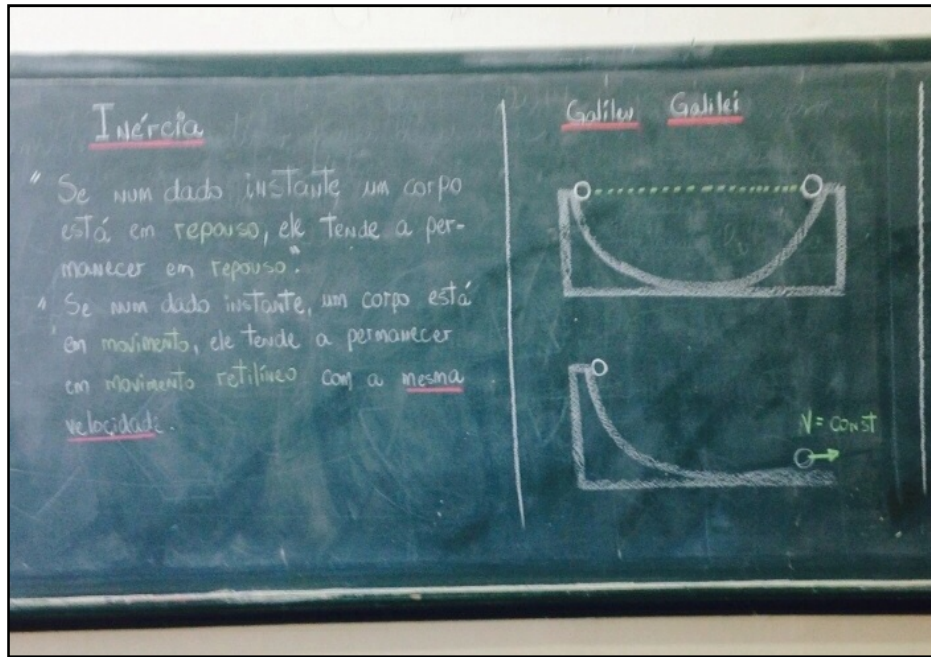 Inércia
" Se num dado instante um corpo
está em repouso, ele tende a per-
manecer em repouso".
" Se num dado instante, um corpo está
em movimento, ele tende a permanecer
em movimento retilíneo com a mesma
velocidade.
Galileu Galilei
V = const